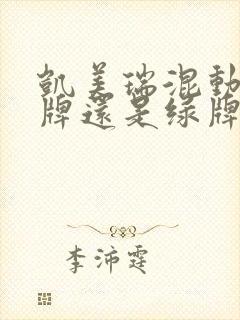 凱美瑞混動
牌還是綠牌
李沛霆